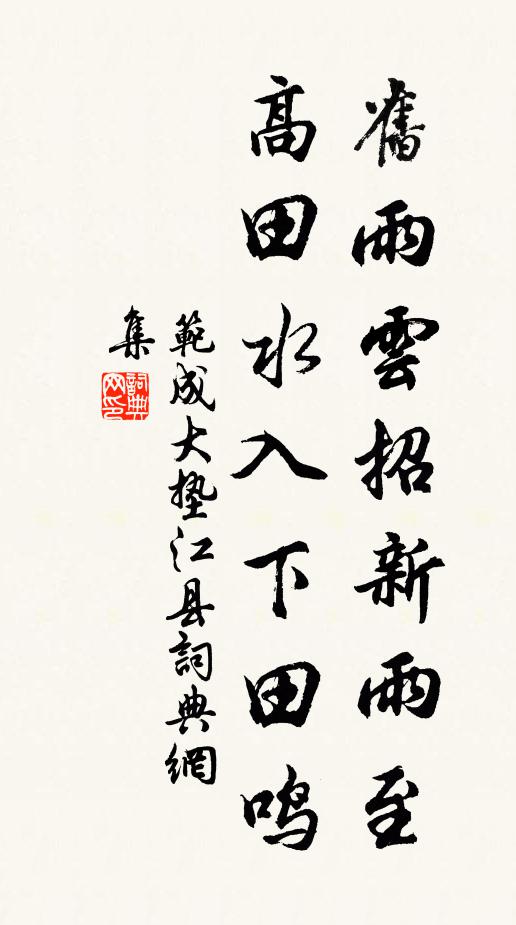 舊雨雲招新雨至
高田水入下田鸣
範成大垫江县詞典網
集
詞典网印